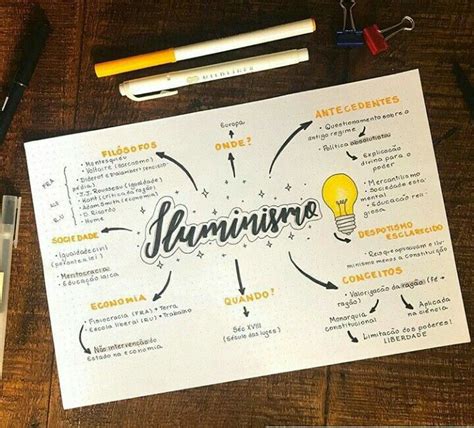 Iluminismo
FILÓSOFOS
• Montesquieu
• Voltaire (sarcasmo)
• Diderot e D'Alambert (enciclo
pédia)
• J.J. Rousseau (igualdade)
• Kant (crítica da razão)
• Adam Smith (economia)
• D. Ricardo
• Hume
FRA
R.U
Europa
ONDE?
ANTECEDENTES
• Questionamento sobre o
antigo regime
• Política absolutista
Explicação
divina para o
poder
• Mercantilismo
• Sociedade esta
mental
• Educação reli
giosa
SOCIEDADE
• Igualdade civil
(perante a lei)
• Meritocracia
• Educação laica
DESPOTISMO
ESCLARECIDO
• Reis que apoiavam o ilu
minismo menos a
constituição
ECONOMIA
• Fisiocracia (FRA) → Terra
• Escola liberal (RU) → Trabalho
Não intervenção do
Estado na economia
QUANDO?
Séc XVIII
(Século das luzes)
CONCEITOS
• Valorização da razão (Fé ≠
razão)
Monarquia
constitucional
Aplicada
na ciência
Limitação dos poderes!
LIBERDADE